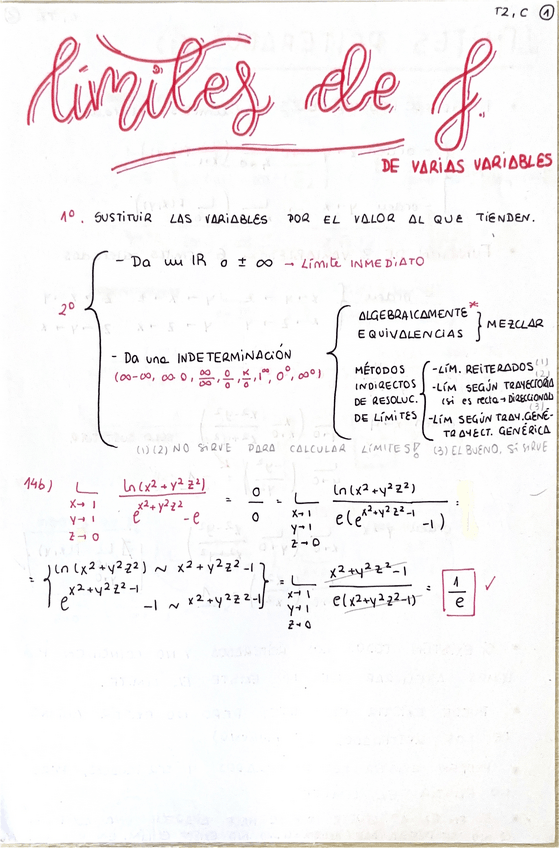 T2, C ①
límites de f.
DE VARIAS VARIABLES
1º. SUSTITUIR LAS VARIABLES POR EL VALOR AL QUE TIENDEN.
2º
- Da un IR o ± ∞ → Límite INMEDIATO
- Da una INDETERMINACIÓN
(∞-∞, ∞·0, ∞/∞, 0/0, k/0, 1^∞, 0^0, ∞^0)
ALGEBRAICAMENTE*
EQUIVALENCIAS } MEZCLAR
MÉTODOS
INDIRECTOS
DE RESOLUC.
DE LÍMITES
- LÍM. REITERADOS (1)
- LÍM SEGÚN TRAYECTORIA (2)
(si es recta → DIRECCIONAL)
(3)
- LÍM SEGÚN TRAY. GENÉ-
TRAYECT. GENÉRICA
(1)(2) NO SIRVE PARA CALCULAR LÍMITES! (3) EL BUENO, SÍ SIRVE
14b) L x→1 y→1 z→0 ln(x²+y²z²) / e^(x²+y²z²) - e = 0/0 = L x→1 y→1 z→0 ln(x²+y²z²) / e(e^(x²+y²z²-1) -1) =
= { ln(x²+y²z²) ~ x²+y²z²-1
e^(x²+y²z²-1) -1 ~ x²+y²z²-1 } = L x→1 y→1 z→0 x²+y²z²-1 / e(x²+y²z²-1) = 1/e ✓